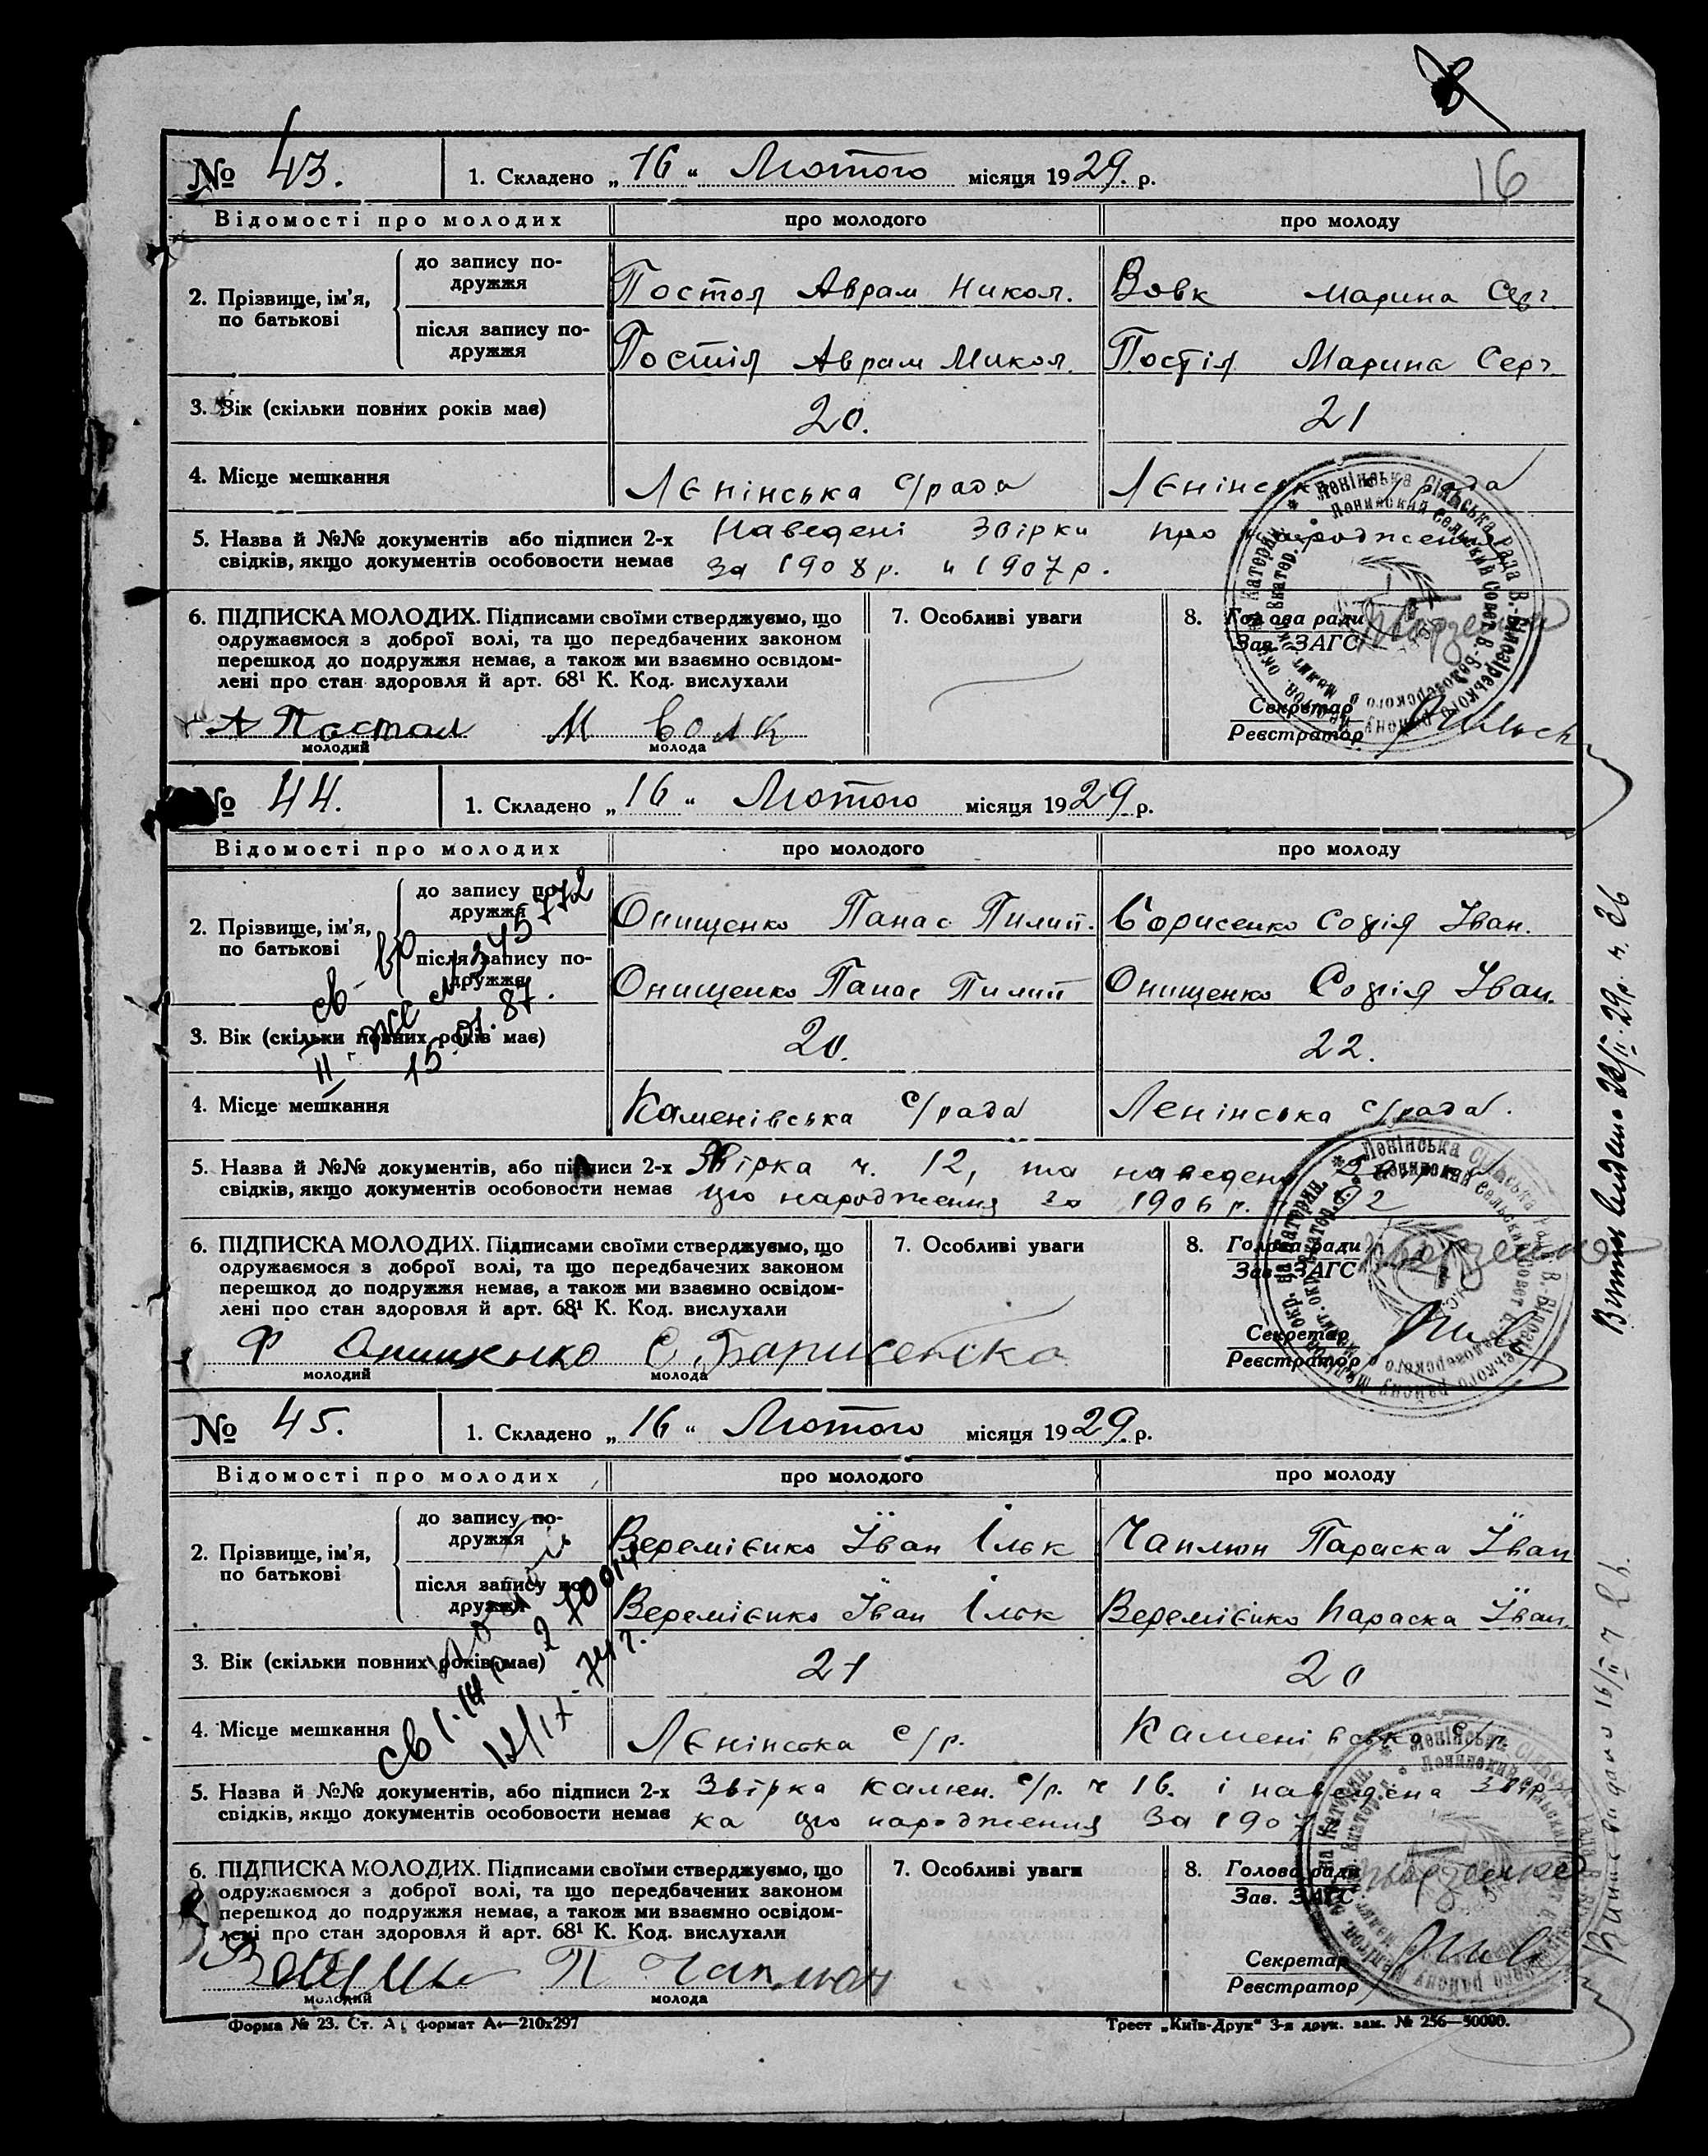 16
№ 43. 1. Складено „16“ Лютого місяця 1929. р.
Відомості про молодих про молодого про молоду
2. Прізвище, ім'я, по батькові
до запису по-дружжя Постол Аврам Никол. Вовк Марина Серг.
після запису по-дружжя Постіл Аврам Микол. Постіл Марина Серг.
3. Вік (скільки повних років має) 20. 21
4. Місце мешкання Лєнінська с/рада Лєнінська с/рада
5. Назва й №№ документів або підписи 2-х Наведені звірки про народження
свідків, якщо документів особовости немає за 1908 р. и 1907 р.
6. ПІДПИСКА МОЛОДИХ. Підписами своїми стверджуємо, що
одружаємося з доброї волі, та що передбачених законом
перешкод до подружжя немає, а також ми взаємно освідом-
лені про стан здоровля й арт. 68¹ К. Код. вислухали
А Постал М Волк
молодий молода
7. Особливі уваги
8. Голова ради
Зав. ЗАГС
Секретар
Реєстратор
№ 44. 1. Складено „16“ Лютого місяця 1929 р.
Відомості про молодих про молодого про молоду
2. Прізвище, ім'я, по батькові
до запису по-дружжя Онищенко Панас Пилип. Борисенко Софія Іван.
після запису по-дружжя Онищенко Панас Пилип Онищенко Софія Іван.
3. Вік (скільки повних років має) 20. 22.
4. Місце мешкання Каменівська с/рада Ленінська с/рада.
5. Назва й №№ документів, або підписи 2-х Звірка ч. 12, та наведена
свідків, якщо документів особовости немає що народження за 1906 р.
6. ПІДПИСКА МОЛОДИХ. Підписами своїми стверджуємо, що
одружаємося з доброї волі, та що передбачених законом
перешкод до подружжя немає, а також ми взаємно освідом-
лені про стан здоровля й арт. 68¹ К. Код. вислухали
С Барисенка
молодий молода
7. Особливі уваги
8. Голова ради
Зав. ЗАГС
Секретар
Реєстратор
15.01.87.
№ 45. 1. Складено „16“ Лютого місяця 1929. р.
Відомості про молодих про молодого про молоду
2. Прізвище, ім'я, по батькові
до запису по-дружжя Веремієнко Їван Ільк Чаплюн Параска Їван
після запису по-дружжя Веремієнко Їван Ільк Веремієнко Параска Їван.
3. Вік (скільки повних років має) 21 20
4. Місце мешкання Лєнінська с/р. Каменівська с/р.
5. Назва й №№ документів, або підписи 2-х Звірка камен. с/р. ч 16. і наведена звір-
свідків, якщо документів особовости немає ка що народження за 1907
6. ПІДПИСКА МОЛОДИХ. Підписами своїми стверджуємо, що
одружаємося з доброї волі, та що передбачених законом
перешкод до подружжя немає, а також ми взаємно освідом-
лені про стан здоровля й арт. 68¹ К. Код. вислухали
П Чаплюн
молодий молода
7. Особливі уваги
8. Голова ради
Зав. ЗАГС
Секретар
Реєстратор
Форма № 23. Ст. А, формат А₄—210х297 Трест „Київ-Друк“ 3-я друк. зам. № 256—50000.